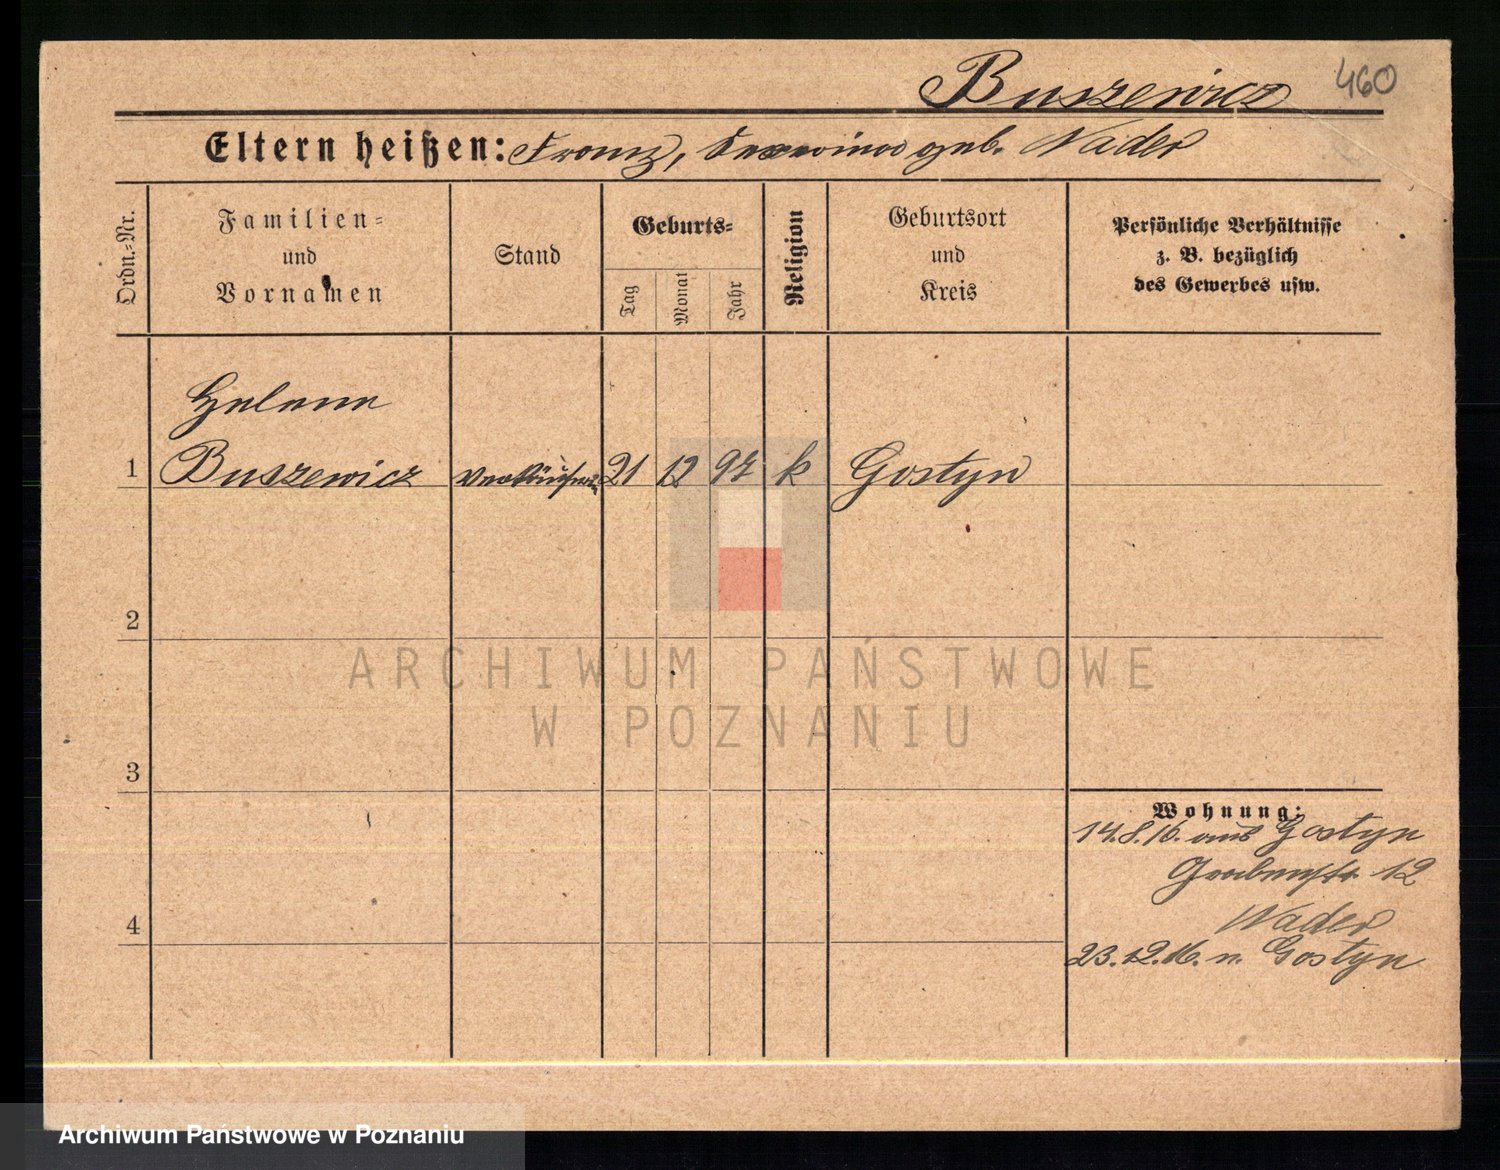 Buszewicz 460
Eltern heißen: Franz, Severina geb. Nader
Ordn.-Nr.
Familien-
und
Vornamen
Stand
Geburts-
Tag
Monat
Jahr
Religion
Geburtsort
und
Kreis
Persönliche Verhältnisse
z. B. bezüglich
des Gewerbes usw.
Helene
1 Buszewicz Verkäuferin 21 12 97 k Gostyn
2
3
Wohnung:
14.8.16. aus Gostyn
Grabenstr. 12
Nader
4
23.12.16. n. Gostyn
ARCHIWUM PAŃSTWOWE
W POZNANIU
Archiwum Państwowe w Poznaniu